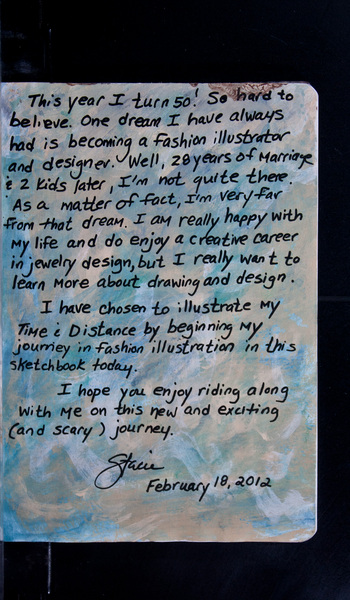 This year I turn 50! So hard to
believe. One dream I have always
had is becoming a fashion illustrator
and designer. Well, 28 years of Marriage
& 2 kids later, I'm not quite there.
As a matter of fact, I'm very far
from that dream. I am really happy with
my life and do enjoy a creative career
in jewelry design, but I really want to
learn more about drawing and design.
I have chosen to illustrate my
Time & Distance by beginning my
journey in fashion illustration in this
sketchbook today.
I hope you enjoy riding along
with me on this new and exciting
(and scary) journey.
Stacie
February 18, 2012